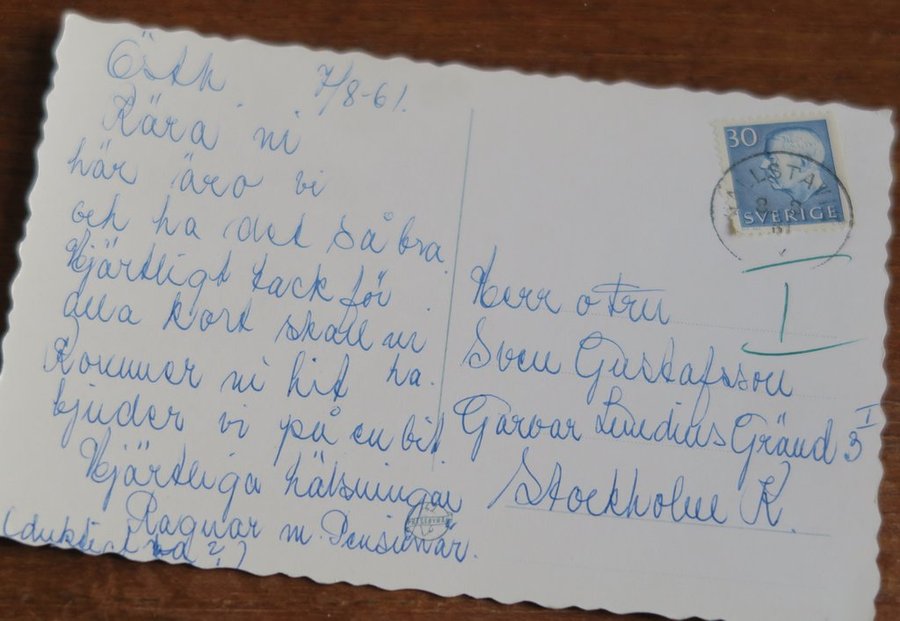 Östh 7/8-61.
Kära ni
här äro vi
och ha det så bra.
Hjärtligt tack för
alla kort skall ni
ha.
Kommer ni hit
bjuder vi på en bit
Hjärtliga hälsningar
Ragnar m. Pensionär.
(duktig va?)
30
SVERIGE
HALLSTAVIK
I
Herr o Fru
Sven Gustafsson
Garvar Lundins Gränd 3 I
Stockholm K.